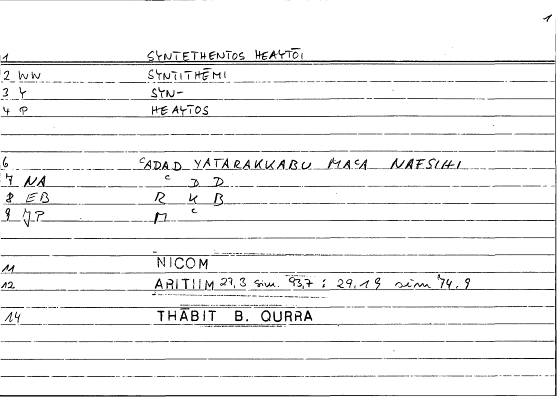 1
1 SYNTETHENTOS HEAYTŌI
2 WW SYNTITHĒMI
3 Y SYN-
4 P HEAYTOS
6 ᶜADAD YATARAKKABU MAᶜA NAFSIHI
7 NA ᶜ D D
8 EB R K B
9 JP M ᶜ
11 NICOM
12 ARITIIM 27,3 sim. 93,7 ; 29,19 sim 74,9
14 THĀBIT B. QURRA